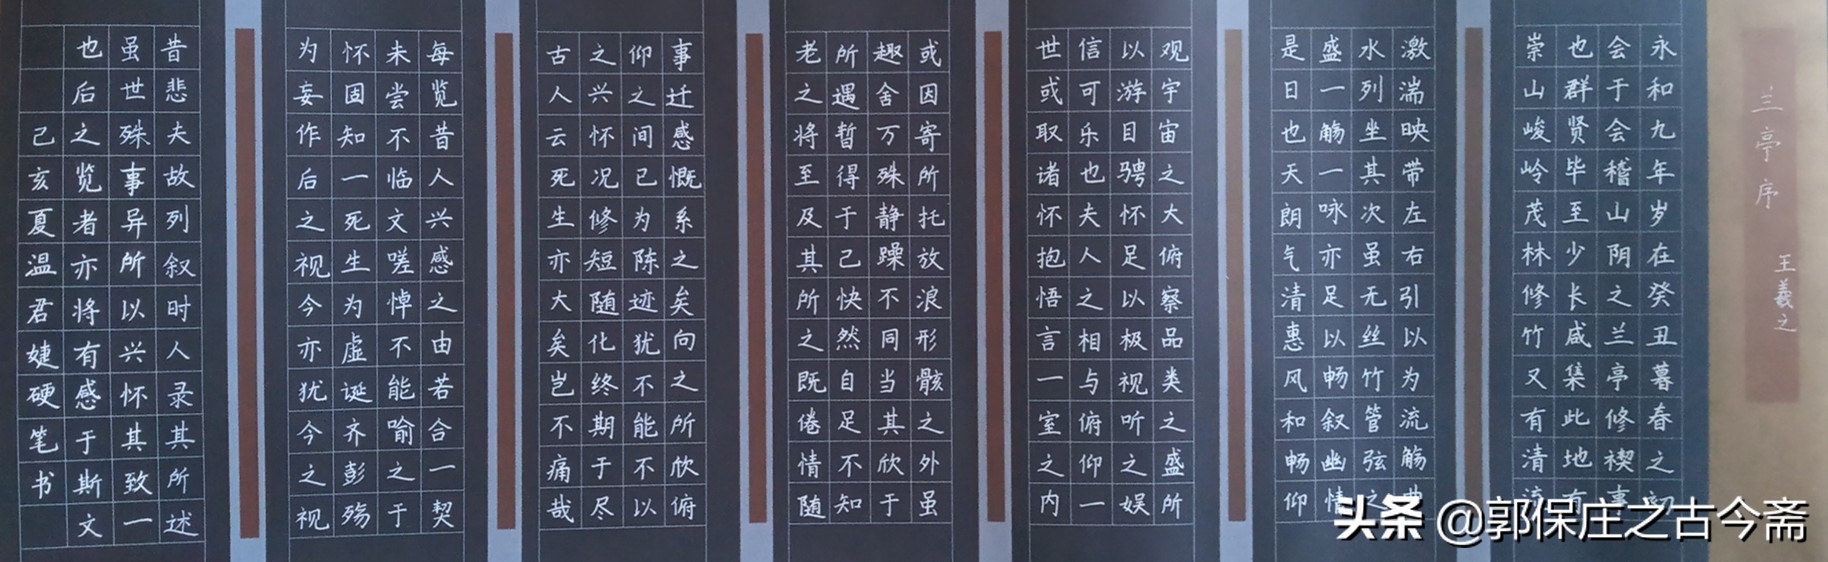 兰亭序
王羲之
永和九年岁在癸丑暮春之初
会于会稽山阴之兰亭修禊事
也群贤毕至少长咸集此地有
崇山峻岭茂林修竹又有清流
激湍映带左右引以为流觞曲
水列坐其次虽无丝竹管弦之
盛一觞一咏亦足以畅叙幽情
是日也天朗气清惠风和畅仰
观宇宙之大俯察品类之盛所
以游目骋怀足以极视听之娱
信可乐也夫人之相与俯仰一
世或取诸怀抱悟言一室之内
或因寄所托放浪形骸之外虽
趣舍万殊静躁不同当其欣于
所遇暂得于己快然自足不知
老之将至及其所之既倦情随
事迁感慨系之矣向之所欣俯
仰之间已为陈迹犹不能不以
之兴怀况修短随化终期于尽
古人云死生亦大矣岂不痛哉
每览昔人兴感之由若合一契
未尝不临文嗟悼不能喻之于
怀固知一死生为虚诞齐彭殇
为妄作后之视今亦犹今之视
昔悲夫故列叙时人录其所述
虽世殊事异所以兴怀其致一
也后之览者亦将有感于斯文
己亥夏温君婕硬笔书
头条 @郭保庄之古今斋